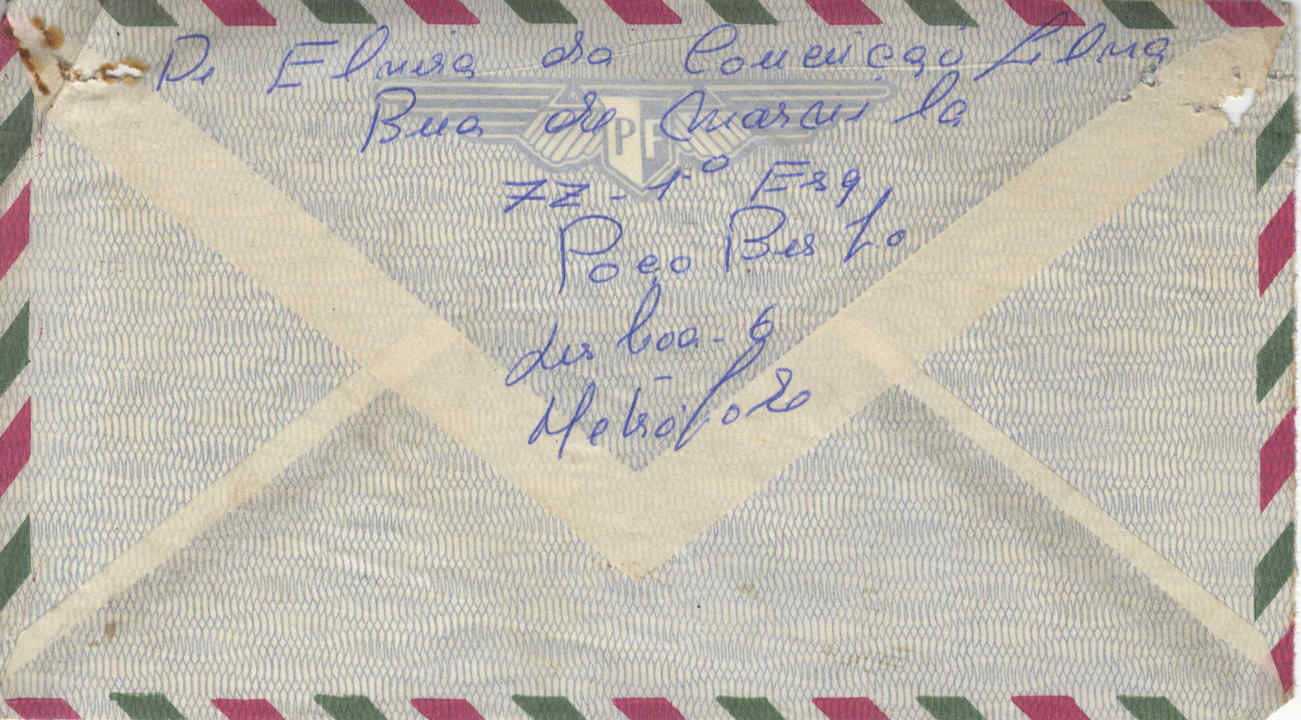 De Elvira da Conceição Silva
Rua de Marvila
PF
72-1º Esq
Poço Bispo
Lisboa-6
Metrópole